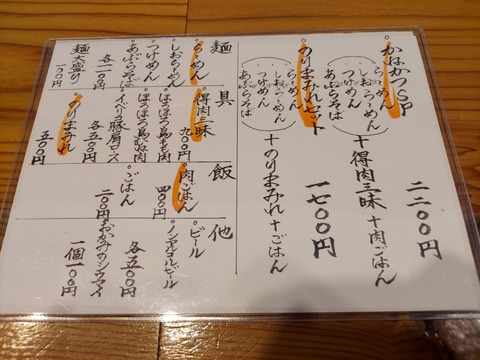 かなかつSP
らーめん
しおらーめん
つけめん
あぶらそば
+得肉三昧+肉ごはん
二二〇〇円
のりまみれセット
らーめん
しおらーめん
つけめん
あぶらそば
+のりまみれ+ごはん
一七〇〇円
麺
らーめん
しおらーめん
つけめん
あぶらそば
各一一〇〇円
麺大盛り
一〇〇円
具
得肉三昧
九〇〇円
ほろほろ鳥もも肉
ほろほろ鳥むね肉
イベリコ豚肩ロース
各五〇〇円
のりまみれ
五〇〇円
飯
肉ごはん
四〇〇円
ごはん
二〇〇円
他
ビール
ノンアルコールビール
各五〇〇円
おかみのシウマイ
一個一〇〇円